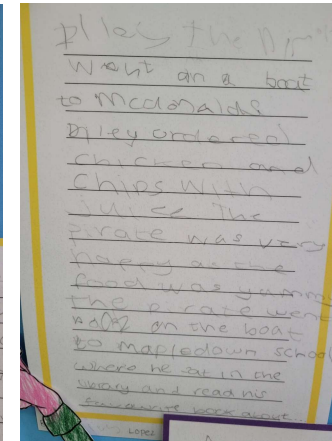 Piley the Pir
Went on a boat
to Mcdonalds
Piley ordered
chicken and
Chips With
juice The
pirate was very
happy as the
food was yummy
the pirate went
on the boat
to mapledown school
where he sat in the
library and read his
favourite book about...
Lopez